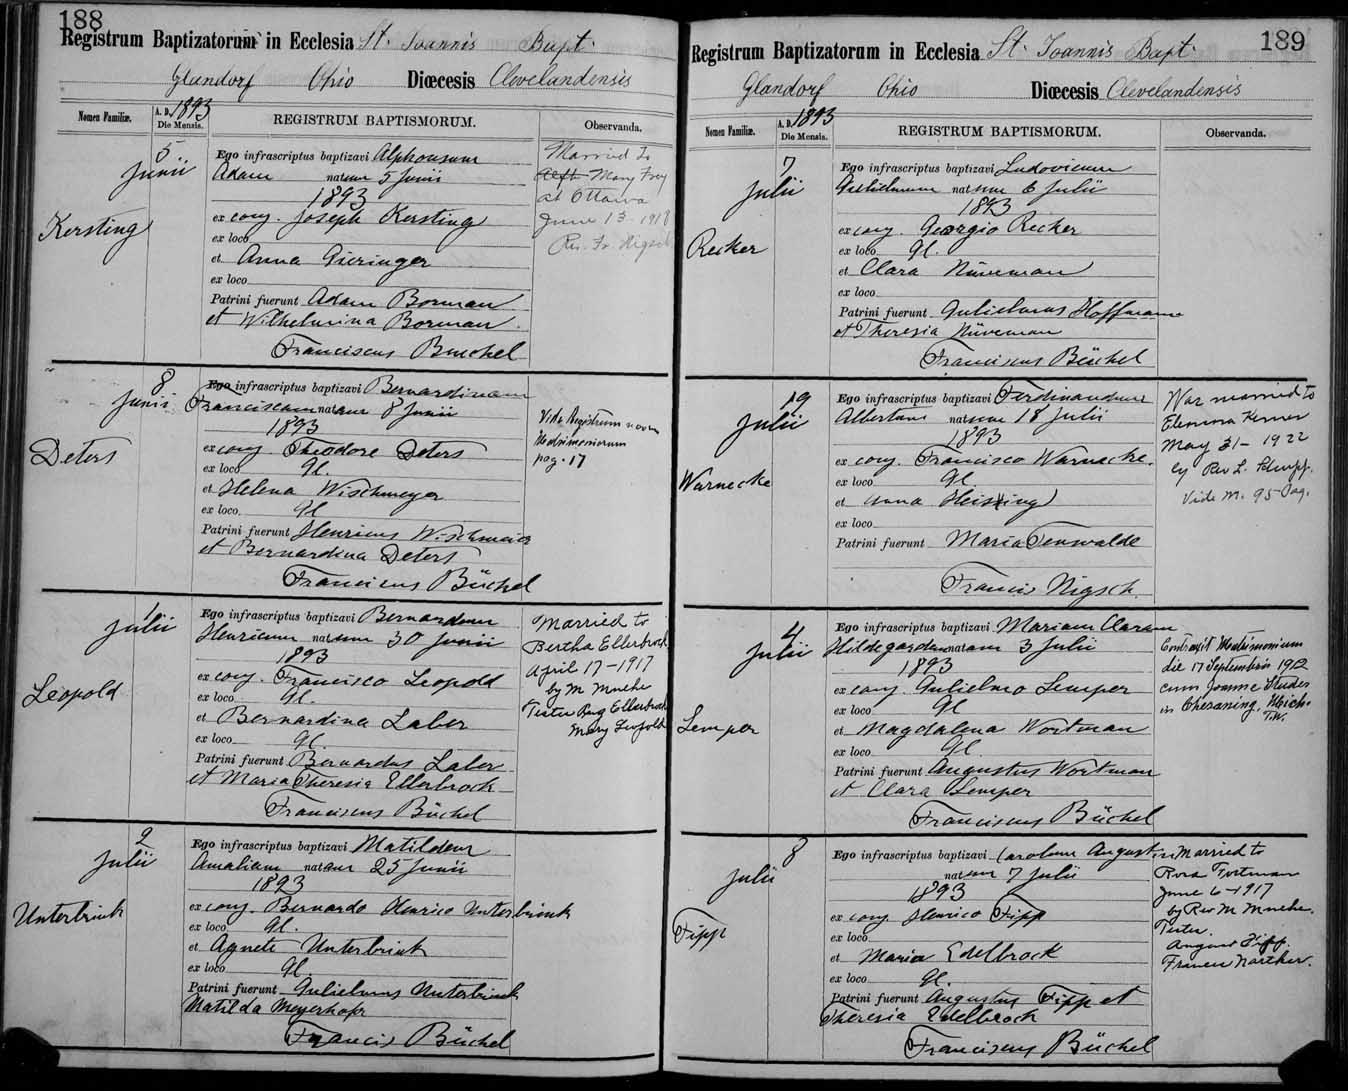 188
Registrum Baptizatorum in Ecclesia St. Joannis Bapt.
Glandorf Ohio Diœcesis Clevelandensis
Nomen Familiæ. A. D. 1893 Die Mensis. REGISTRUM BAPTISMORUM. Observanda.
5 Junii
Kersting
Ego infrascriptus baptizavi Alphonsum
Adam natum 5 Junii
1893
ex conj. Joseph Kersting
ex loco
et Anna Gieringer
ex loco
Patrini fuerunt Adam Borman
et Wilhelmina Borman.
Franciscus Buechel
Married to
Mary Frey
at Ottawa
June 13 1918
Rev. Fr. Nigsch
8 Junii
Deters
Ego infrascriptus baptizavi Bernardinam
Franciscam natam 8 Junii
1893
ex conj. Theodore Deters
ex loco Gl.
et Helena Wischmeyer
ex loco Gl
Patrini fuerunt Henricus Wischmeier
et Bernardina Deters
Franciscus Büchel
Vide Registrum novum
Matrimoniorum
pag. 17
1 Julii
Leopold
Ego infrascriptus baptizavi Bernardum
Henricum natum 30 Junii
1893
ex conj. Francisco Leopold
ex loco Gl.
et Bernardina Laber
ex loco Gl.
Patrini fuerunt Bernardus Laber
et Maria Theresia Ellerbrock
Franciscus Büchel
Married to
Bertha Ellerbrock
April 17-1917
by M Muehe
Testes Ellerbrock
Mary Leopold
2 Julii
Unterbrink
Ego infrascriptus baptizavi Matildam
Amaliam natam 25 Junii
1893
ex conj. Bernardo Henrico Unterbrink
ex loco Gl.
et Agnete Unterbrink
ex loco Gl
Patrini fuerunt Gulielmus Unterbrink
Matilda Meyerhofr
Francis Büchel
189
Registrum Baptizatorum in Ecclesia St. Joannis Bapt.
Glandorf Ohio Diœcesis Clevelandensis
Nomen Familiæ. A. D. 1893 Die Mensis. REGISTRUM BAPTISMORUM. Observanda.
7 Julii
Recker
Ego infrascriptus baptizavi Ludovicum
Gulielmum natum 6 Julii
1893
ex conj. Georgio Recker
ex loco Gl.
et Clara Nüveman
ex loco
Patrini fuerunt Gulielmus Hoffmann
et Theresia Nüveman
Franciscus Büchel
19 Julii
Warnecke
Ego infrascriptus baptizavi Ferdinandum
Albertum natum 18 Julii
1893
ex conj. Francisco Warnecke.
ex loco Gl.
et Anna Heising
ex loco
Patrini fuerunt Maria Tenwalde
Francis Nigsch.
Was married to
May 31-1922
by Rev L.
Vide M. 95 Pag.
4 Julii
Lemper
Ego infrascriptus baptizavi Mariam Claram
Hildegardem natam 3 Julii
1893
ex conj. Gulielmo Lemper
ex loco Gl
et Magdalena Wortman
ex loco Gl
Patrini fuerunt Augustus Wortman
et Clara Lemper
Franciscus Büchel
Contraxit Matrimonium
die 17 Septembris 1912
cum Studer
in Chesaning, Mich.
T.W.
8 Julii
Fipp
Ego infrascriptus baptizavi Carolum Augustin
natum 7 Julii
1893
ex conj Henrico Fipp
ex loco
et Maria Edelbrock
ex loco Gl.
Patrini fuerunt Augustus Fipp et
Theresia Edelbrock
Franciscus Büchel
Married to
Rosa Tortman
June 6-1917
by Rev M Muehe.
Testes.
August Fipp.